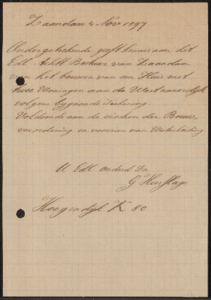 Zaandam 4 Nov 1897
Ondergeteekende geeft kennis aan het
Edl. Achtb Bestuur van Zaandam
van het bouwen van een Huis met
twee Woningen aan de Westzanerdijk
volgens bijgaande Teekening
Voldoende aan de eischen der Bouw
verordening en voorzien van Waterleiding
U Edl. onderd. Dn.
G
Hoogendijk K 80